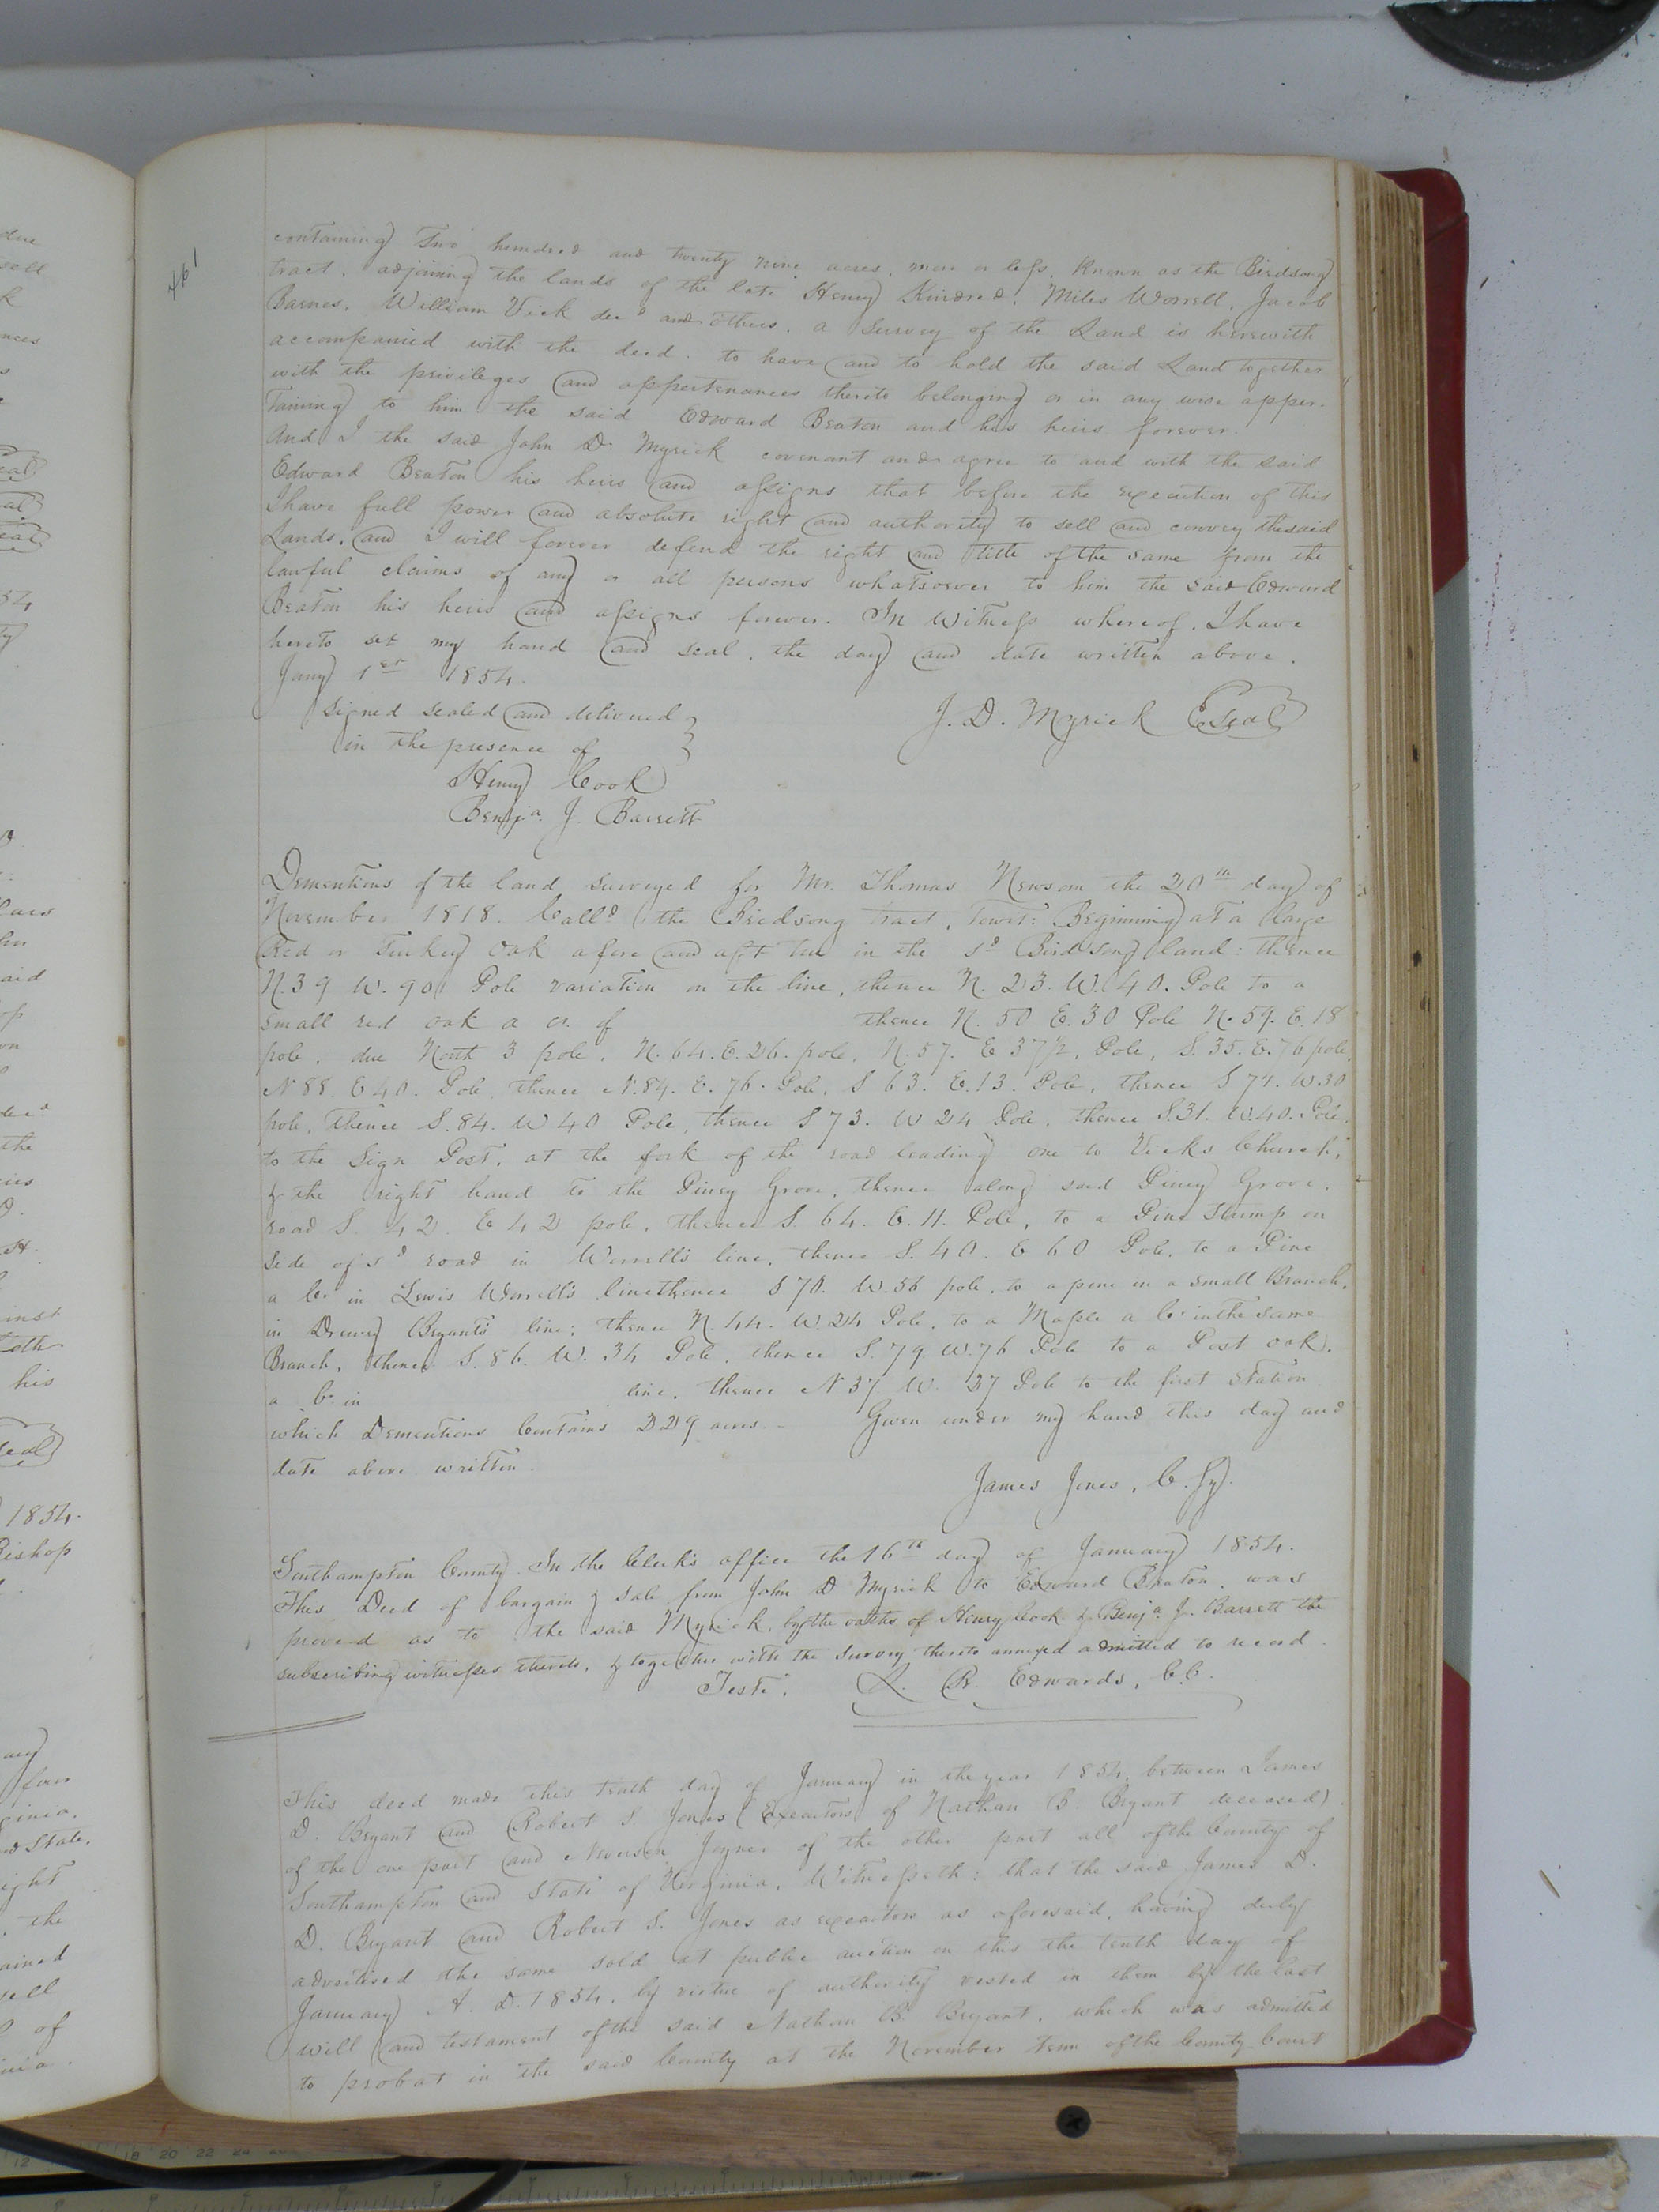 461
containing Two hundred and twenty nine acres, more or less, known as the Birdsong
tract, adjoining the lands of the late Henry Kindred, Miles Worrell, Jacob
Barnes, William Vick decd and others. a survey of the Land is herewith
accompanied with the deed. to have and to hold the said Land together
with the privileges and appertenances thereto belonging or in any wise apper-
taining to him the said Edward Beaton and his heirs forever.
And I the said John D. Myrick covenant and agree to and with the said
Edward Beaton his heirs and assigns that before the execution of this
I have full power and absolute right and authority to sell and convey the said
Lands, and I will forever defend the right and title of the same from the
lawful claims of any or all persons whatsoever to him the said Edward
Beaton his heirs and assigns forever. In Witness whereof, I have
hereto set my hand and seal, the day and date written above.
Jany 1st 1854.
Signed sealed and delivered
in the presence of
J. D. Myrick Seal
Henry Cook
Benja. J. Barrett
Dementions of the land surveyed for Mr. Thomas Newsom the 20th day of
November 1818. Calld the Birdsong tract, Towit: Beginning at a large
Red or Turkey oak a fore and aft tree in the sd Birdsong land: thence
N. 39 W. 90 Pole variation on the line, thence N. 23. W. 40. Pole to a
small red oak a cr. of thence N. 50 E. 30 Pole N. 59. E. 18
pole, due North 3 pole, N. 64. E. 26. pole, N. 57. E 37½, Pole, S. 35. E. 76 pole,
N 88 E 40. Pole, thence N. 84. E. 76. Pole, S 63. E. 13. Pole, thence S 74. W. 30
pole, thence S. 84. W 40 Pole, thence S 73. W 24 Pole, thence S. 31. W. 40. Pole,
to the Sign Post, at the fork of the road leading one to Vicks Church,
& the right hand to the Piney Grove, thence along said Piney Grove,
road S. 42. E 42 pole, thence S. 64. E. 11. Pole, to a Pine Stump on
side of sd road in Worrell's line, thence S. 40. E 60 Pole, to a Pine
a Cr in Lewis Worrell's line thence S 70. W. 56 pole, to a pine in a small Branch,
in Drewry Bryant's line; thence N 44. W. 24 Pole, to a Maple a Cr in the same
Branch, thence S. 86. W. 34 Pole, thence S. 79 W. 76 Pole to a Post oak,
a Cr in line, thence N 37 W. 37 Pole to the first Station
which Dementions Contains 229 acres. - Given under my hand this day and
date above written.
James Jones, C. Sy.
Southampton County. In the Clerk's office the 16th day of January 1854.
This Deed of bargain & sale from John D Myrick to Edward Beaton, was
proved as to the said Myrick, by the oaths of Henry Cook & Benja. J. Barrett the
subscribing witnesses thereto, & together with the Survey thereto annexed admitted to record.
Teste, L. R. Edwards, C.C.
This deed made this tenth day of January in the year 1854, between James
D. Bryant and Robert S. Jones (Executors of Nathan B. Bryant deceased)
of the one part and Joyner of the other part all of the County of
Southampton and State of Virginia, Witnesseth: that the said James D.
D. Bryant and Robert S. Jones as executors as aforesaid, having duly
advertised the same sold at public auction on this the tenth day of
January A. D. 1854, by virtue of authority vested in them by the last
will and testament of the said Nathan B. Bryant, which was admitted
to probat in the said County at the November term of the County Court